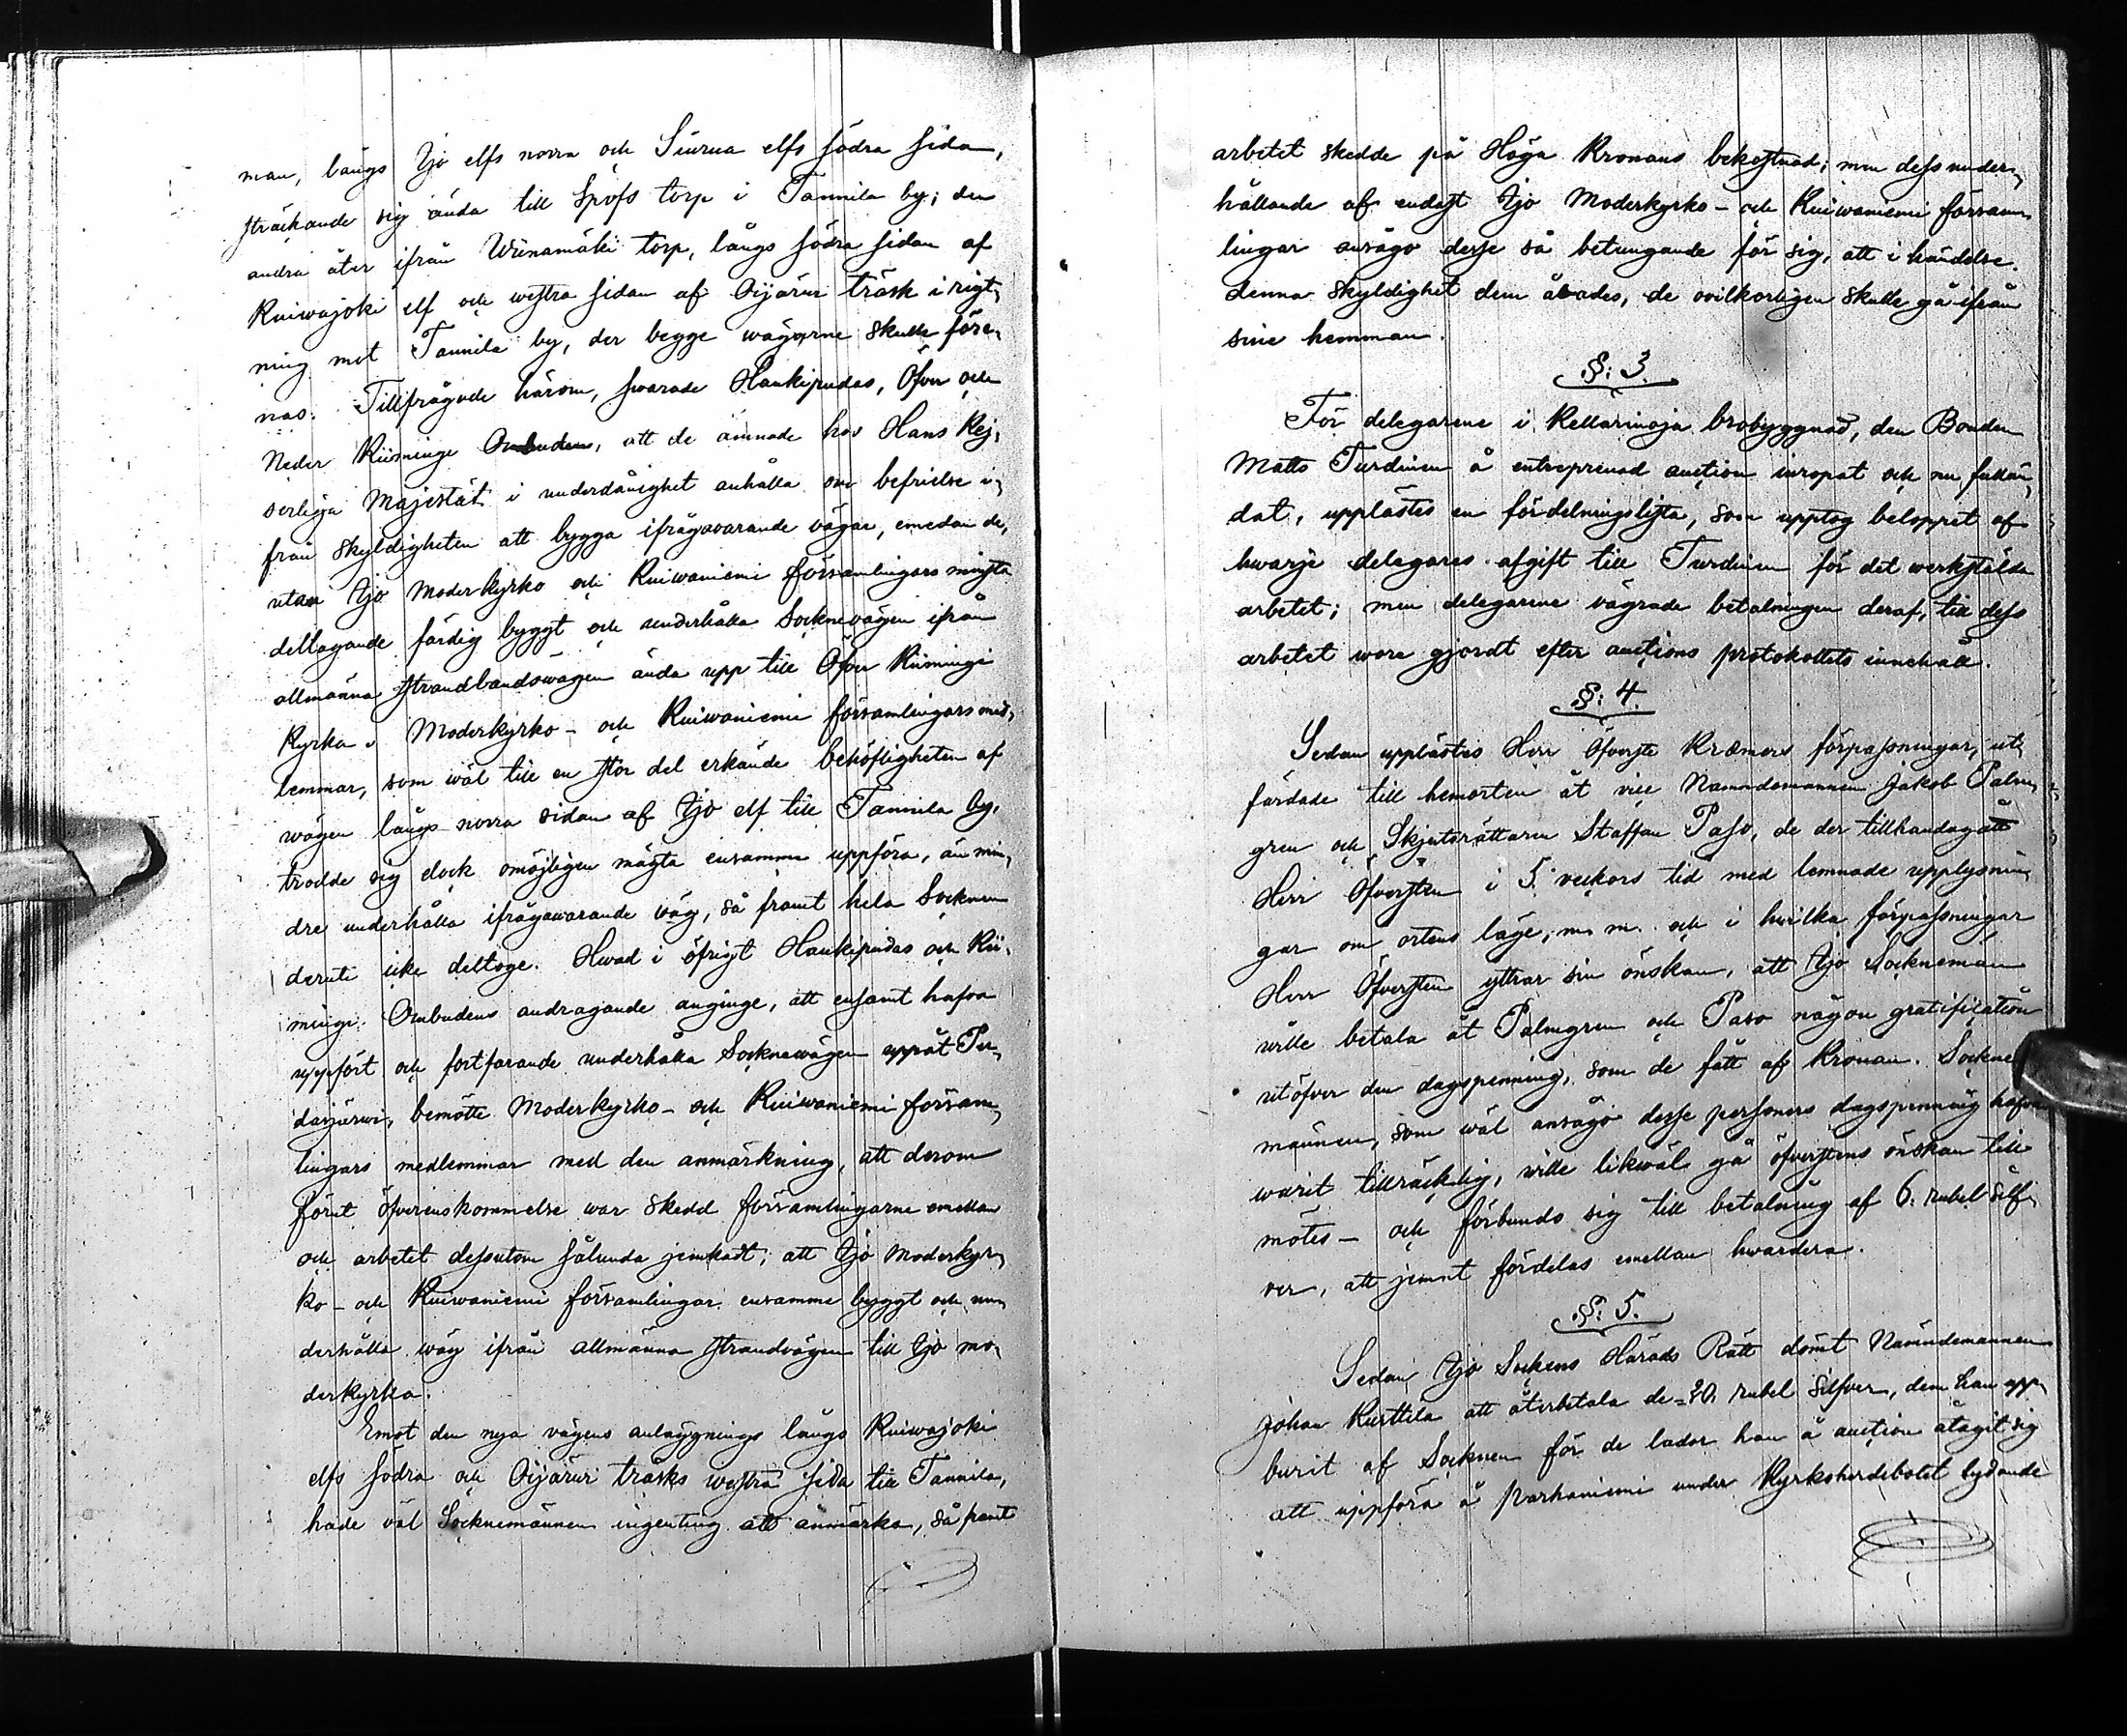 man, längs Ijo elfs norra och Siurua elfs södra sida,
sträckande sig ända till Spofs torp i Tannila by; den
andra åter ifrån Wiinamäki torp, längs södra sidan af
Kuiwajoki elf och westra sidan af Oijärwi träsk i rigt-
ning mot Tannila by, der begge wägarne skulle före-
nas. Tillfrågade härom, swarade Haukipudas, Öfver och
Neder Kiiminge Ombuden, att de ämnade hos Hans Kej-
serliga Majestät i underdånighet anhålla om befrielse i-
från skyldigheten att bygga ifrågavarande vägar, emedan de,
utan Ijo Moderkyrko och Kuiwaniemi församlingars minsta
deltagande färdig byggt och underhålla Socknevägen ifrån
allmänna strandlandswägen ända upp till Öfver Kiimingi
Kyrka. Moderkyrko- och Kuiwaniemi församlingars med-
lemmar, som wäl till en stor del erkände behöfligheten af
wägen längs norra sidan af Ijo elf till Tannila by,
trodde sig dock omöjligen mägta ensamme uppföra, än min-
dre underhålla ifrågawarande wäg, så framt hela Socknen
deruti icke deltoge. Hwad i öfrigt Haukipudas och Kii-
minge Ombudens andragande anginge, att ensamt hafva
uppfört och fortfarande underhålla Socknewägen uppåt Pu-
dasjärwi, bemötte Moderkyrko- och Kuiwaniemi försam-
lingars medlemmar med den anmärkning, att derom
förut öfverenskommelse war skedd församlingarne emellan
och arbetet dessutom sålunda jemkadt; att Ijo Moderkyr-
ko- och Kuiwaniemi församlingar ensamme byggt och un-
derhålla wäg ifrån allmänna strandvägen till Ijo mo-
derkyrka.
Emot den nya vägens anläggnings längs Kuiwajoki
elfs södra och Oijärwi träsks westra sida till Tannila,
hade väl Socknemännen ingenting att anmärka, så framt
arbetet skedde på Höga Kronans bekostnad; men dess under-
hållande af endast Ijo Moderkyrko- och Kuiwaniemi försam-
lingar ansågo desse så betungande för sig, att i händelse
denna skyldighet dem ålades, de ovilkorligen skulle gå ifrån
sine hemman.
§: 3.
För delegarene i Kellarinoja brobyggnad, den Bonden
Matts Turdinen å entreprenad auction inropat och nu fullän-
dat, upplästes en fördelningslista, som upptog beloppet af
hwarje delegares afgift till Turdinen för det werkstälda
arbetet; men delegarene vägrade betalningen deraf, till dess
arbetet wore gjordt efter auctions protokollets innehåll.
§: 4.
Sedan upplästes Herr Öfverste Kræmers förpassningar, ut-
färdade till hemorten åt vice Nämndemannen Jakob Palm-
gren och Skjutsrättaren Staffan Paso, de der tillhandagått
Herr Öfversten i 5. veckors tid med lemnade upplysnin-
gar om ortens läge, m. m. och i hwilka förpassningar
Herr Öfversten yttrar sin önskan, att Ijo Socknemän
wille betala åt Palmgren och Paso någon gratification
utöfver den dagspenning, som de fått af Kronan. Sockne-
männen, som wäl ansågo desse personers dagspenning hafva
warit tillräcklig, wille likwäl gå öfverstens önskan till
mötes – och förbundo sig till betalning af 6. rubel silf-
ver, att jemnt fördelas emellan hwardera.
§: 5.
Sedan Ijo Sockens Härads Rätt dömt Nämndemannen
Johan Kurttila att återbetala de 20. rubel Silfver, dem han upp-
burit af Socknen för de lador han å auction åtagit sig
att uppföra å Karhaniemi under Kyrkoherdebolet lydande